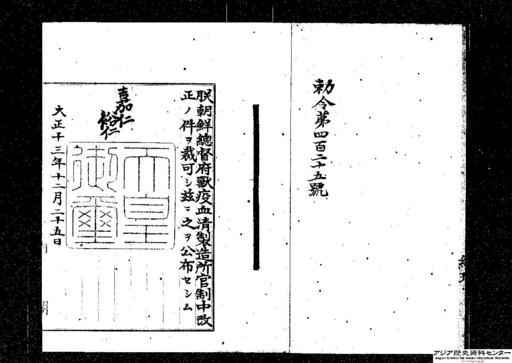 勅令第四百二十五號
朕朝鮮總督府獸疫血清製造所官制中改
正ノ件ヲ裁可シ茲ニ之ヲ公布セシム
嘉仁
裕仁
天皇
御璽
大正十三年十二月二十五日
アジア歴史資料センター
Japan Center for Asian Historical Records